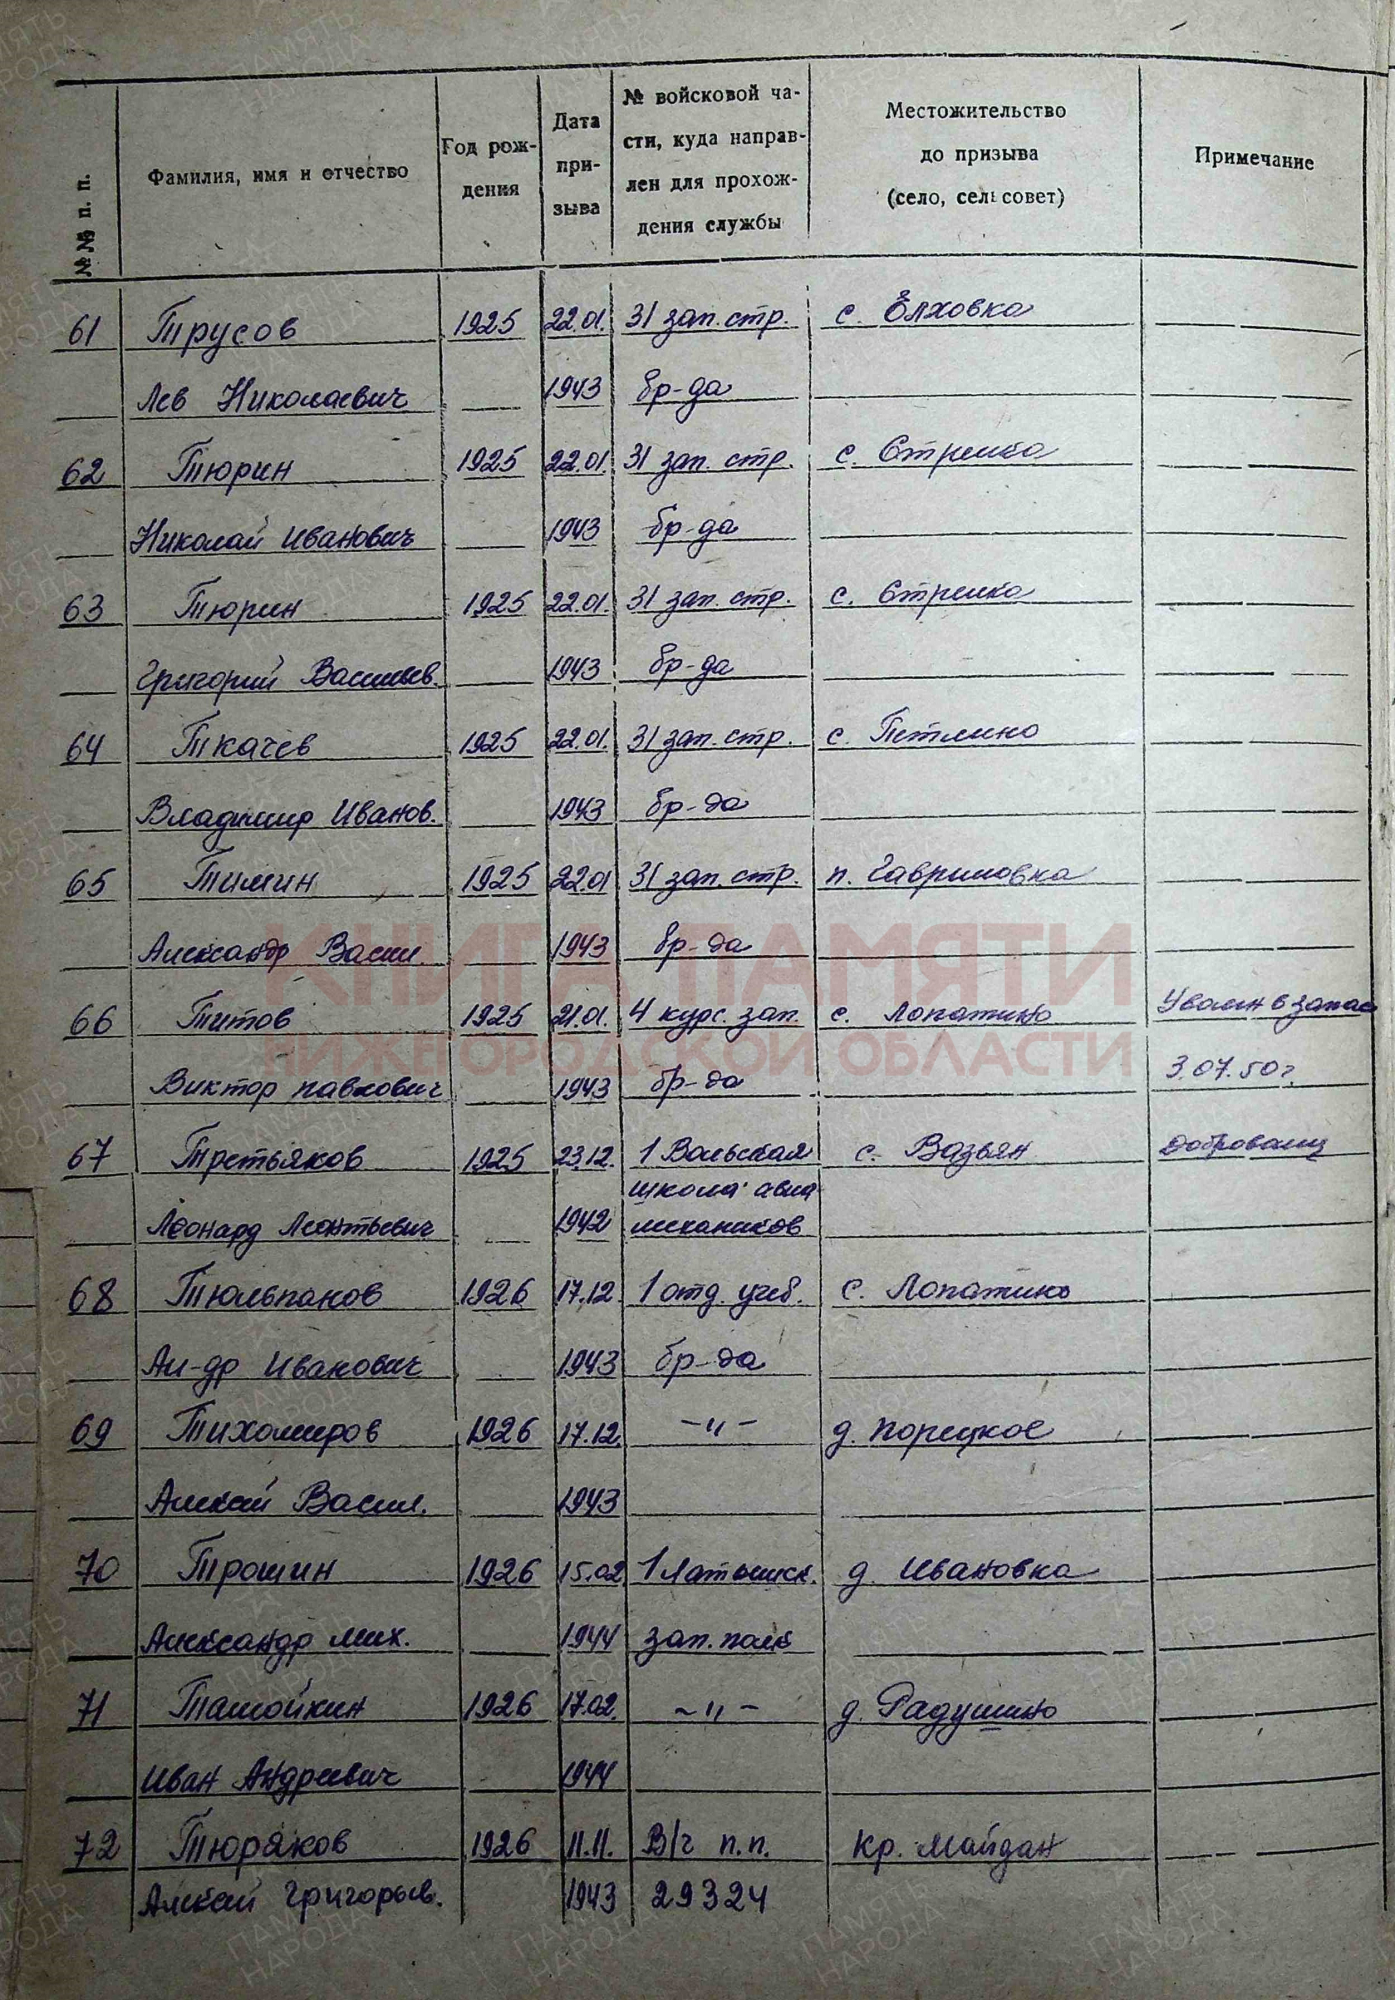 №№ п. п.
Фамилия, имя и отчество
Год рож-
дения
Дата
при-
зыва
№ войсковой ча-
сти, куда направ-
лен для прохож-
дения службы
Местожительство
до призыва
(село, сельсовет)
Примечание
61 Трусов 1925 22.01. 31 зап. стр. с. Ёлховка
Лев Николаевич 1943 бр-да
62 Тюрин 1925 22.01. 31 зап. стр. с. Стрелка
Николай Иванович 1943 бр-да
63 Тюрин 1925 22.01. 31 зап. стр. с. Стрелка
Григорий Васильев. 1943 бр-да
64 Ткачев 1925 22.01. 31 зап. стр. с. Петлино
Владимир Иванов. 1943 бр-да
65 Тимин 1925 22.01 31 зап. стр. п. Гавриловка
Александр Васил. 1943 бр-да
КНИГА ПАМЯТИ
66 Титов 1925 21.01. 4 курс. зап. с. Лопатино Уволен в запас
НИЖЕГОРОДСКОЙ ОБЛАСТИ
Виктор Павлович 1943 бр-да 3.07.50г.
67 Третьяков 1925 23.12. 1 Вольская с. Вазьян доброволец
школа авиа-
Леонард Леонтьевич 1942 механиков
68 Тюльпанов 1926 17.12. 1 отд. учеб. с. Лопатино
Ал-др Иванович 1943 бр-да
69 Тихомиров 1926 17.12. -"- д. Порецкое
Алексей Васил. 1943
70 Трошин 1926 15.02 1 Латышск. д. Ивановка
Александр Мих. 1944 зап. полк
71 Талойкин 1926 17.02. -"- д. Радушино
Иван Андреевич 1944
72 Тюряков 1926 11.11. В/ч п.п. Кр. Майдан
Алексей Григорьев. 1943 29324
ПАМЯТЬ
НАРОДА